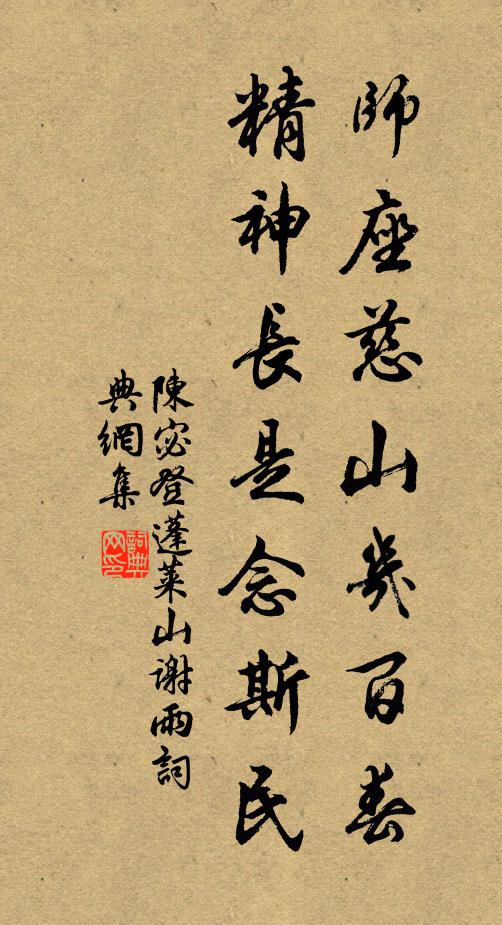 師座慈山幾百春
精神長是念斯民
陳宓登蓬萊山謝雨詞
典網集
詞典網印